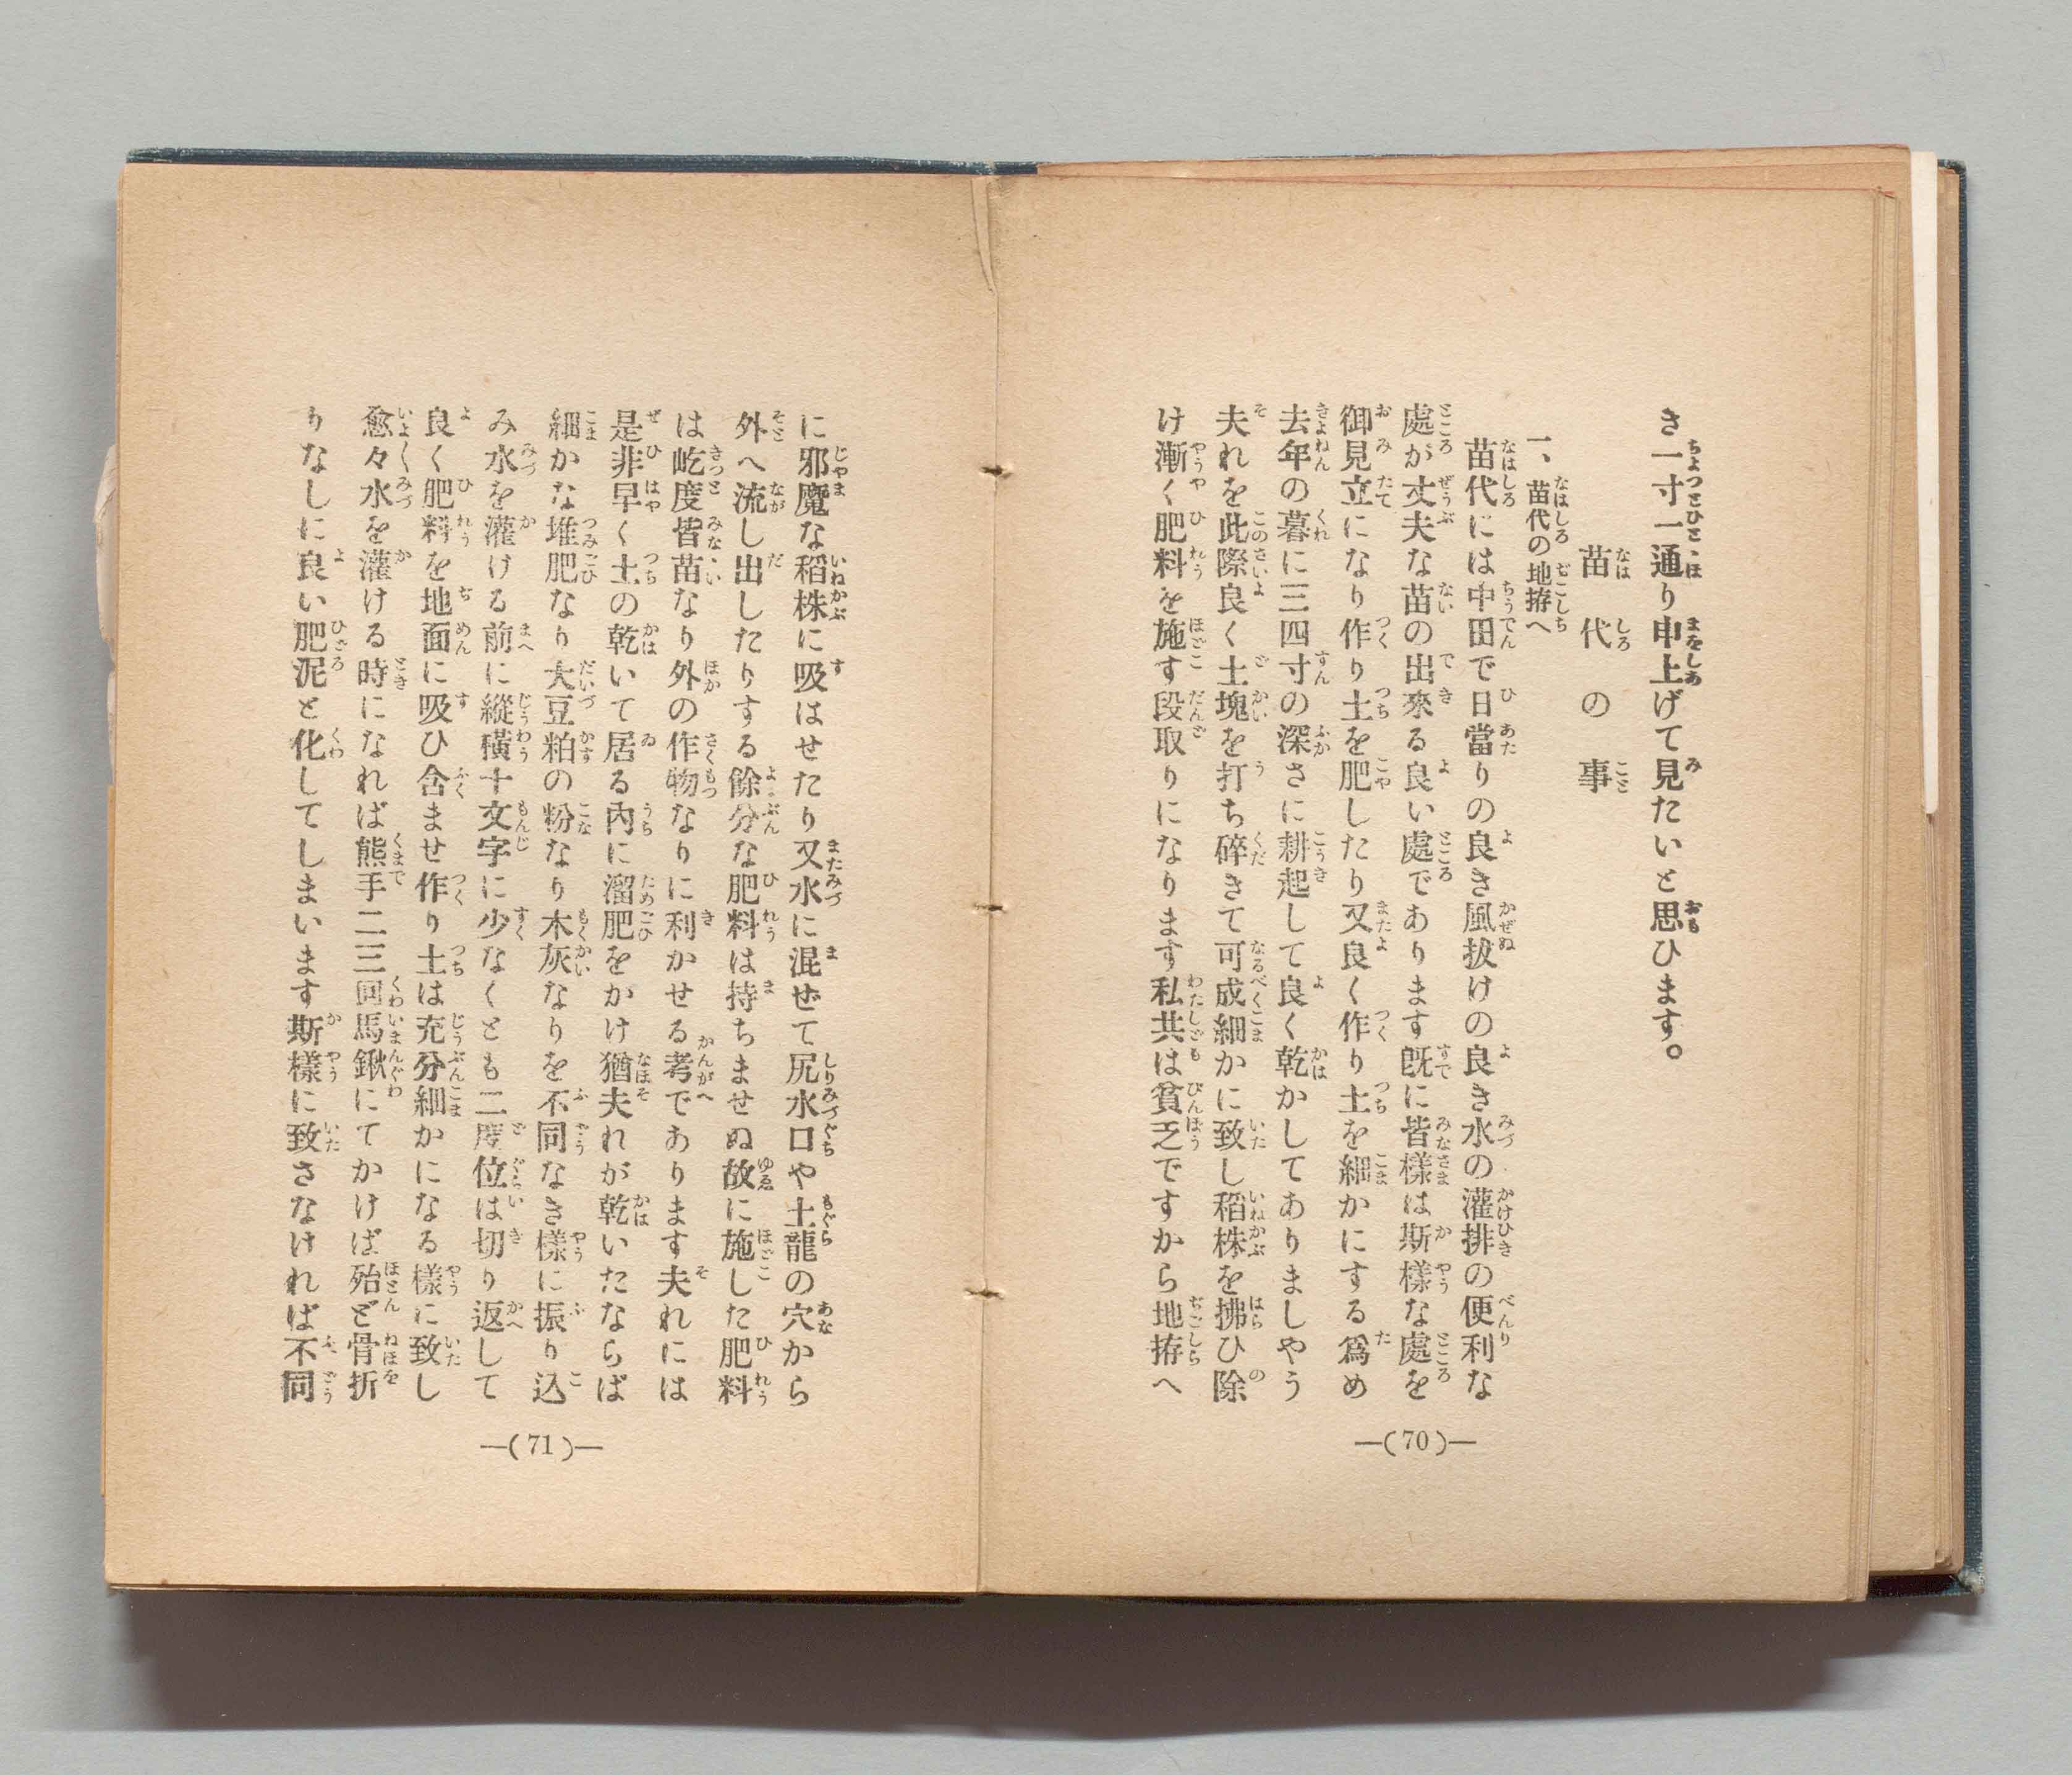 き一寸一通り申上げて見たいと思ひます。
苗代の事
一、苗代の地拵へ
苗代には中田で日當りの良き風拔けの良き水の灌排の便利な
處が丈夫な苗の出來る良い處であります既に皆樣は斯樣な處を
御見立になり作り土を肥したり又良く作り土を細かにする爲め
去年の暮に三四寸の深さに耕起して良く乾かしてありましやう
夫れを此際良く土塊を打ち碎きて可成細かに致し稻株を拂ひ除
け漸く肥料を施す段取りになります私共は貧乏ですから地拵へ
―(70)―
に邪魔な稻株に吸はせたり又水に混ぜて尻水口や土龍の穴から
外へ流し出したりする餘分な肥料は持ちませぬ故に施した肥料
は屹度皆苗なり外の作物なりに利かせる考であります夫れには
是非早く土の乾いて居る內に溜肥をかけ猶夫れが乾いたならば
細かな堆肥なり大豆粕の粉なり木灰なりを不同なき樣に振り込
み水を灌ける前に縱橫十文字に少なくとも二度位は切り返して
良く肥料を地面に吸ひ含ませ作り土は充分細かになる樣に致し
愈々水を灌ける時になれば熊手二三回馬鍬にてかけば殆ど骨折
りなしに良い肥泥と化してしまいます斯樣に致さなければ不同
―(71)―